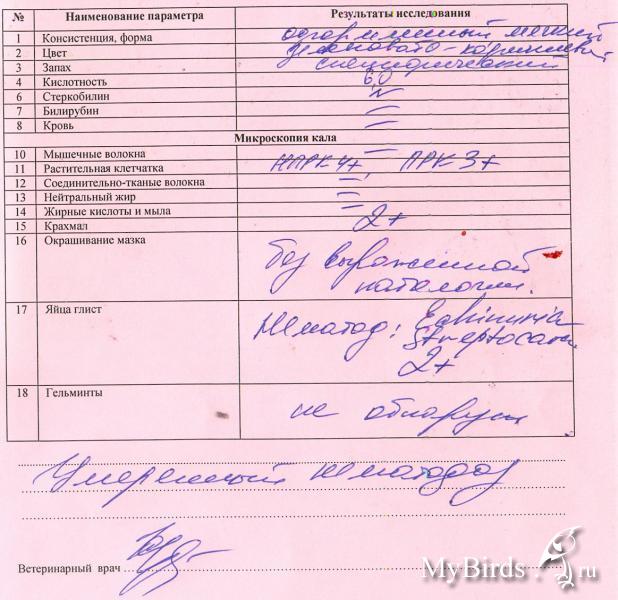 № Наименование параметра Результаты исследования
1 Консистенция, форма оформленный мягкий
2 Цвет зеленовато-коричневый
3 Запах специфический
4 Кислотность 6,0
6 Стеркобилин N
7 Билирубин –
8 Кровь –
Микроскопия кала
10 Мышечные волокна –
11 Растительная клетчатка НПРК 4+, ПРК 3+
12 Соединительно-тканые волокна –
13 Нейтральный жир –
14 Жирные кислоты и мыла –
15 Крахмал 2+
16 Окрашивание мазка без выраженной
патологии.
17 Яйца глист Нематод: Echinuria
Streptocara
2+
18 Гельминты не обнаруж
Умеренный нематодоз
Ветеринарный врач
MyBirds.ru